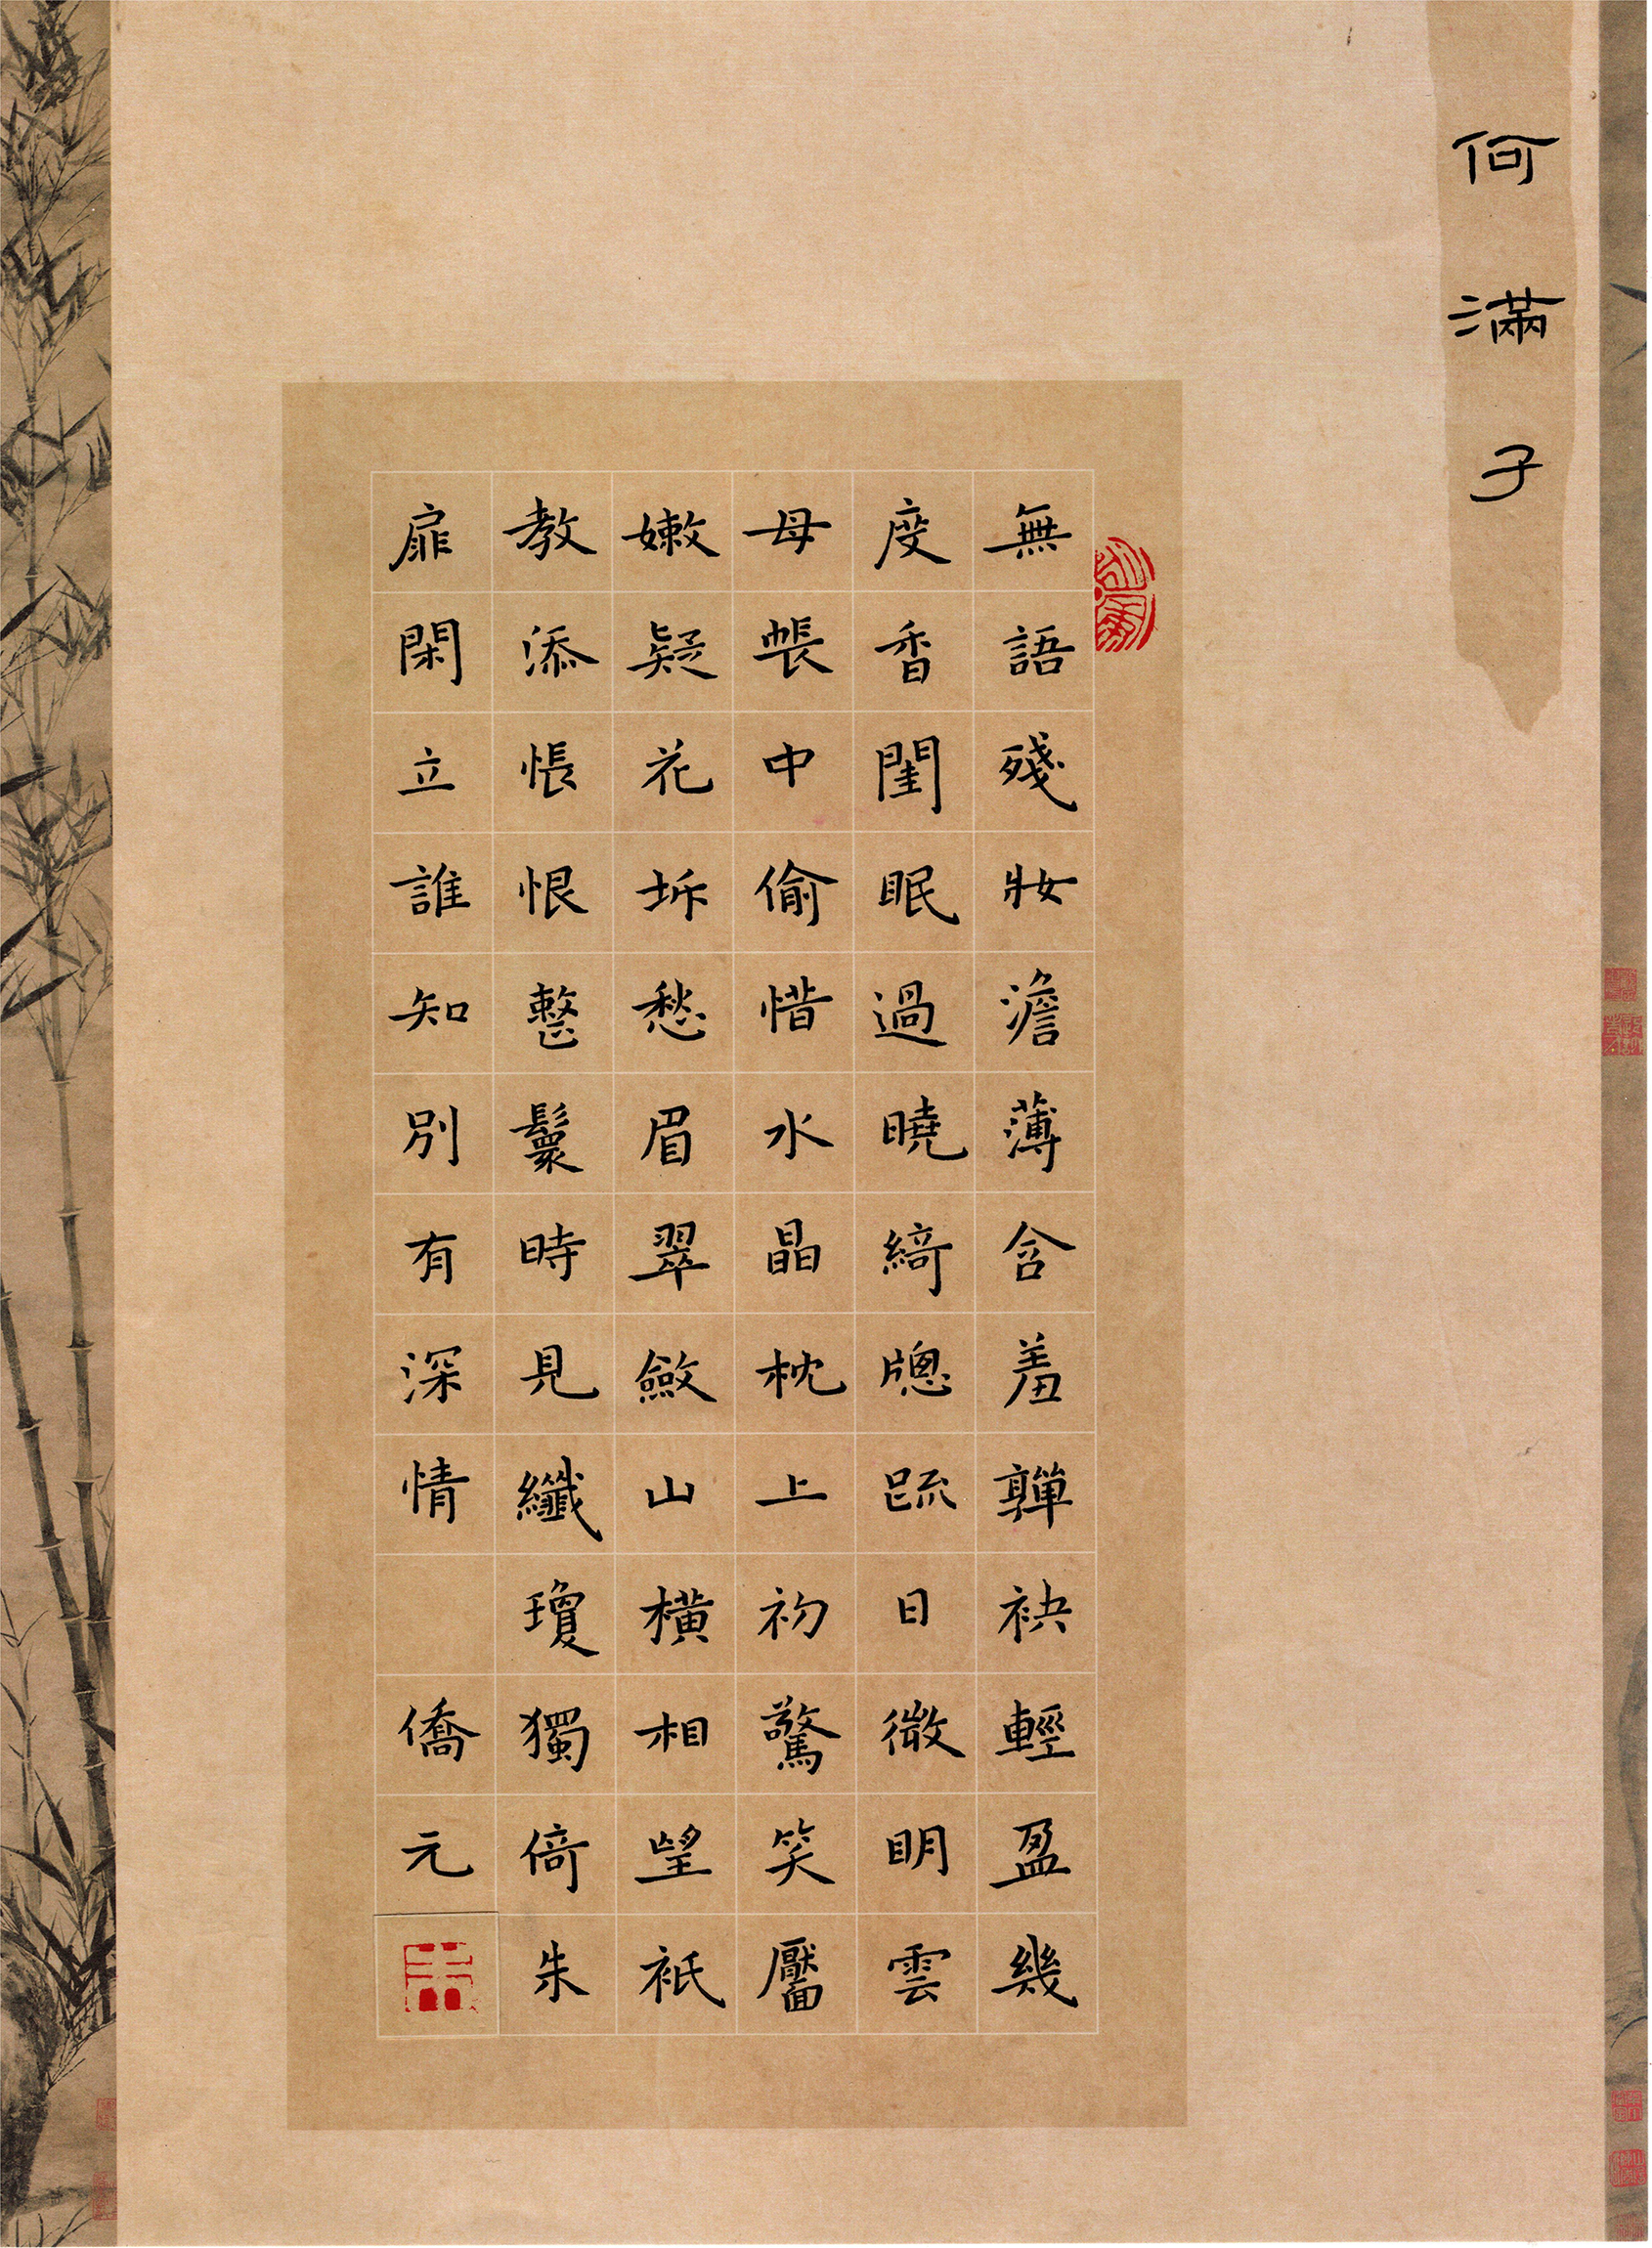 何滿子
無語殘妝澹薄含羞嚲袂輕盈幾
度香閨眠過曉綺牕疏日微眀雲
母帳中偷惜水晶枕上初驚笑靨
嫩疑花坼愁眉翠斂山橫相望衹
教添悵恨整鬟時見纖瓊獨倚朱
扉閑立誰知別有深情 僑元